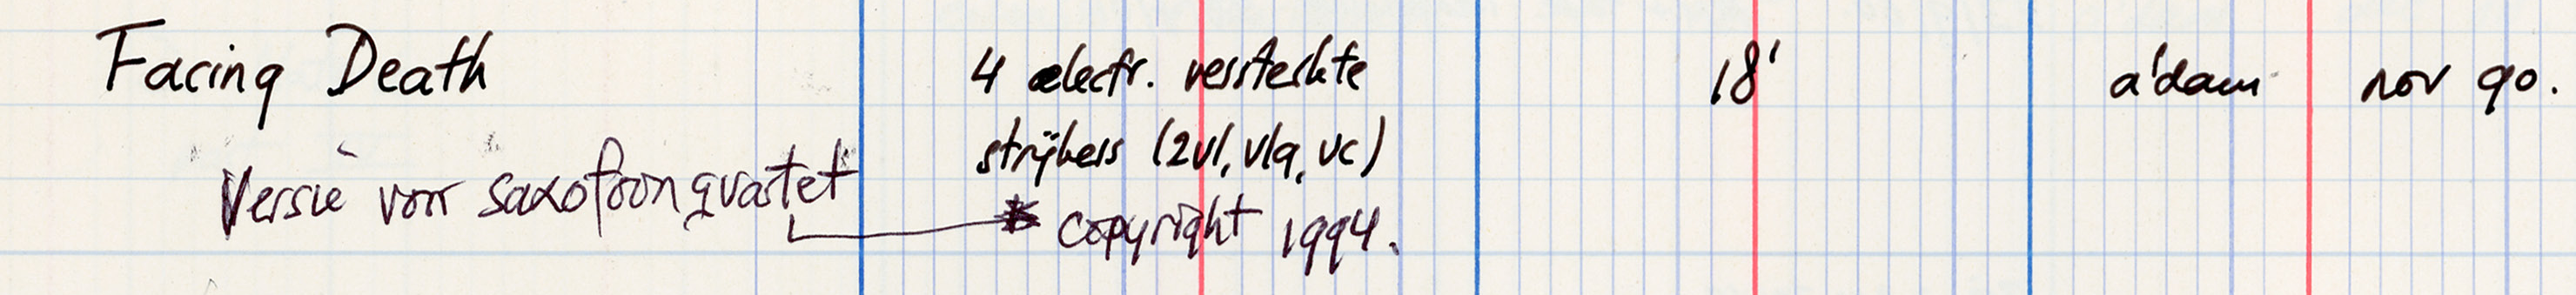 Facing Death 4 electr. versterkte 18' a'dam nov 90.
strijkers (2vl, vla, vc)
Versie voor saxofoonquartet
copyright 1994.